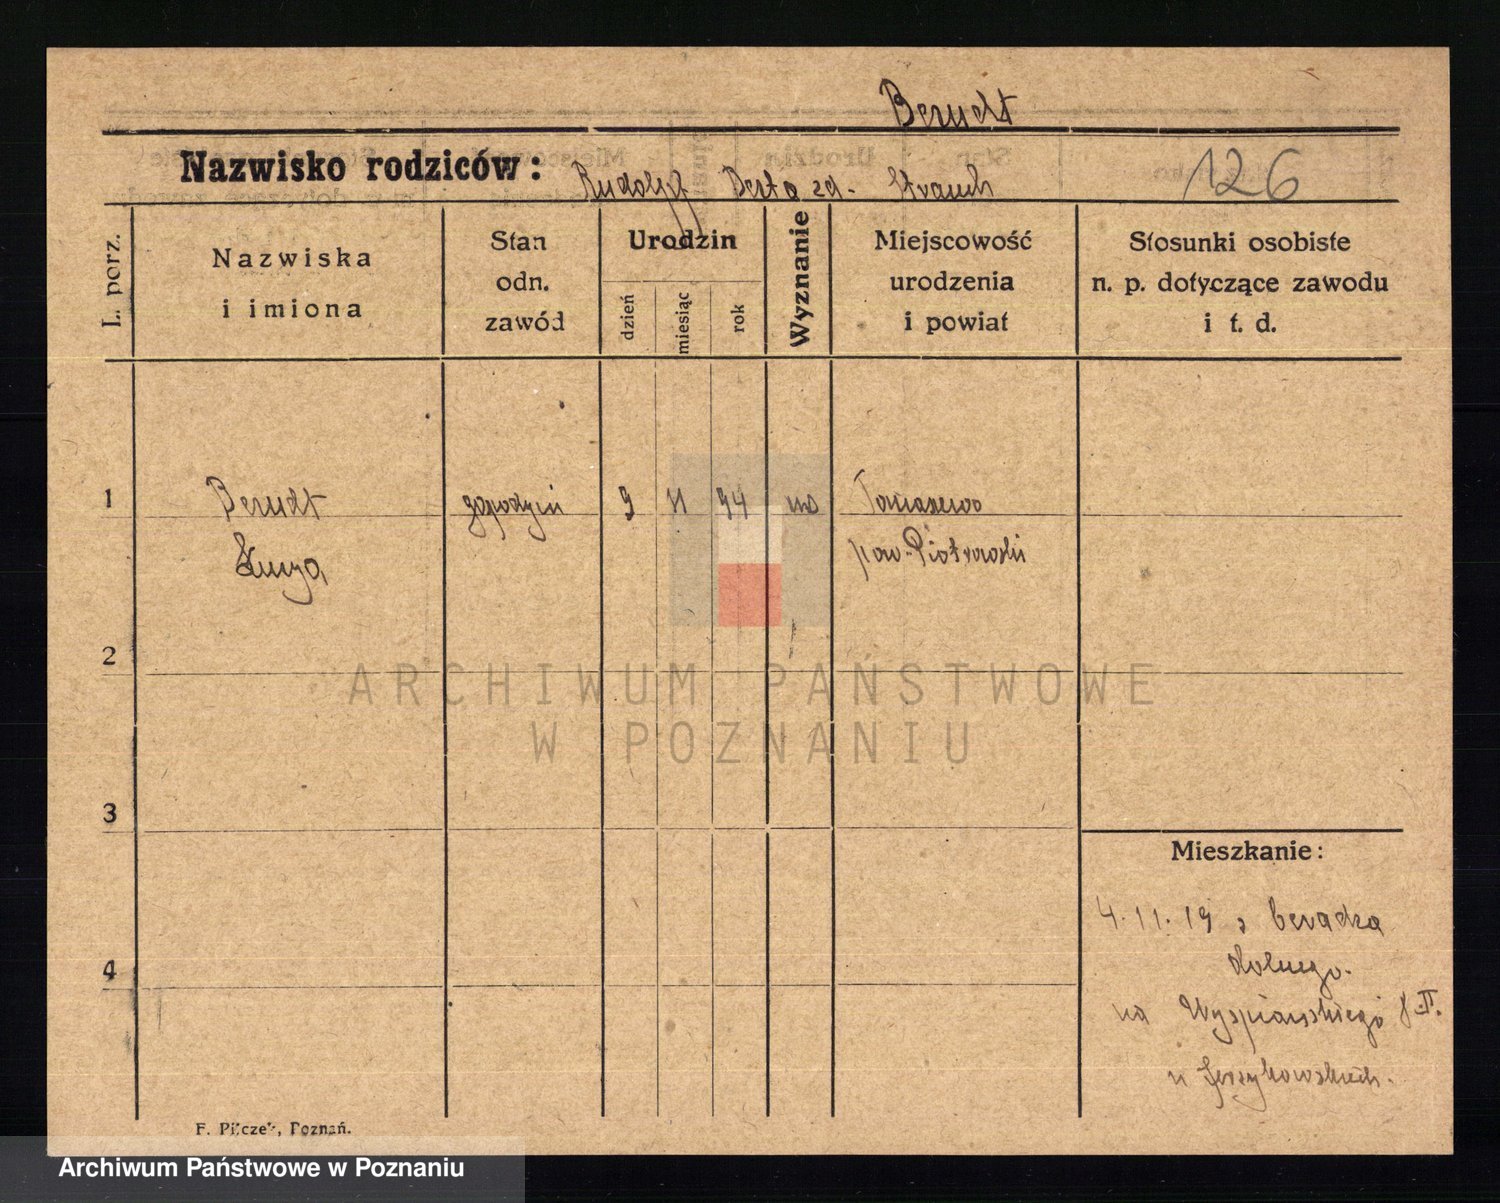 Berndt
Nazwisko rodziców: Rudolf Berta zd. Strauch
126
L. porz.
Nazwiska
i imiona
Stan
odn.
zawód
Urodzin
dzień
miesiąc
rok
Wyznanie
Miejscowość
urodzenia
i powiat
Stosunki osobiste
n. p. dotyczące zawodu
i t. d.
1
Berndt gospodyni 9 11 94
pow.
2
ARCHIWUM PAŃSTWOWE
W POZNANIU
3
Mieszkanie:
4.11.19 z
4
na Wyspiańskiego II.
F. Pilczek, Poznań.
Archiwum Państwowe w Poznaniu